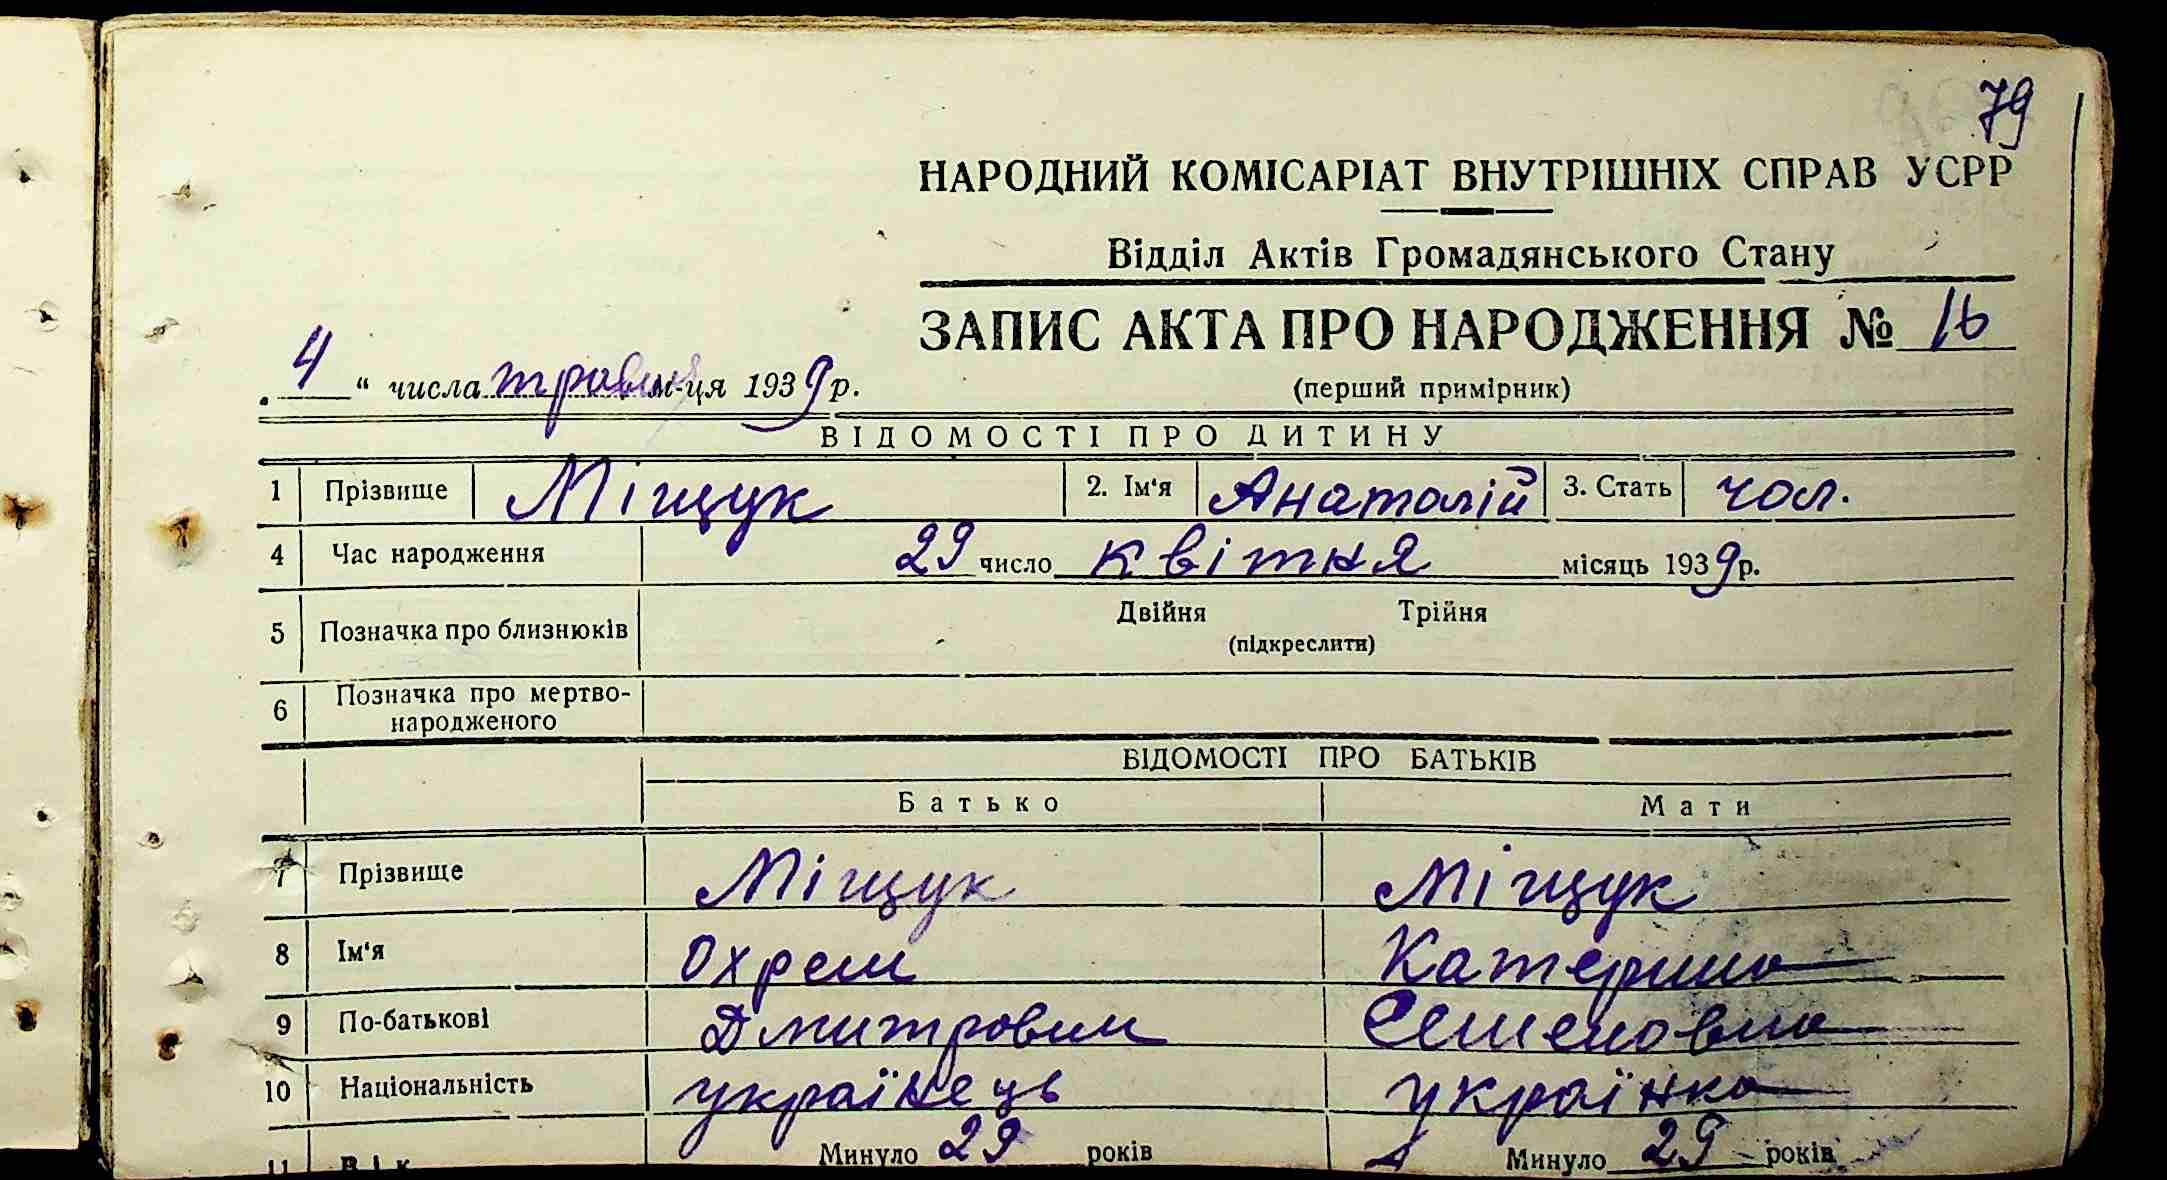 79
НАРОДНИЙ КОМІСАРІАТ ВНУТРІШНІХ СПРАВ УСРР
Відділ Актів Громадянського Стану
ЗАПИС АКТА ПРО НАРОДЖЕННЯ № 16
(перший примірник)
4 " числа травня м-ця 1939 р.
ВІДОМОСТІ ПРО ДИТИНУ
1 Прізвище Міщук 2. Ім'я Анатолій 3. Стать чол.
4 Час народження 29 число квітня місяць 1939 р.
5 Позначка про близнюків Двійня Трійня
(підкреслити)
6 Позначка про мертво-
народженого
ВІДОМОСТІ ПРО БАТЬКІВ
Батько Мати
7 Прізвище Міщук Міщук
8 Ім'я Охрем Катерина
9 По-батькові Дмитрович Семеновна
10 Національність українець українка
11 Вік Минуло 29 років Минуло 29 років